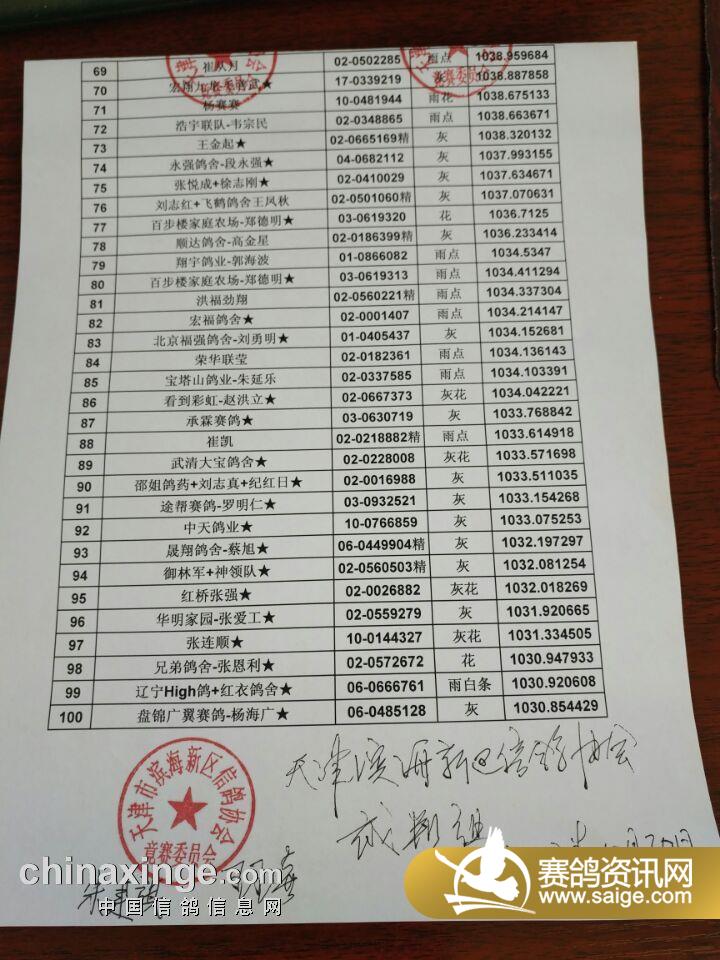 69 崔从月 02-0502285 雨点 1038.959684
70 17-0339219 灰 1038.887858
71 杨赛赛 10-0481944 雨花 1038.675133
72 浩宇联队-韦宗民 02-0348865 雨点 1038.663671
73 王金起★ 02-0665169精 灰 1038.320132
74 永强鸽舍-段永强★ 04-0682112 灰 1037.993155
75 张悦成+徐志刚★ 02-0410029 灰 1037.634671
76 刘志红+飞鹤鸽舍王凤秋 02-0501060精 灰 1037.070631
77 百步楼家庭农场-郑德明★ 03-0619320 花 1036.7125
78 顺达鸽舍-高金星 02-0186399精 灰 1036.233414
79 翔宇鸽业-郭海波 01-0866082 雨点 1034.5347
80 百步楼家庭农场-郑德明★ 03-0619313 雨点 1034.411294
81 洪福劲翔 02-0560221精 雨点 1034.337304
82 宏福鸽舍★ 02-0001407 雨点 1034.214147
83 北京福强鸽舍-刘勇明★ 01-0405437 灰 1034.152681
84 荣华联莹 02-0182361 雨点 1034.136143
85 宝塔山鸽业-朱延乐 02-0337585 雨点 1034.103391
86 看到彩虹-赵洪立★ 02-0667373 灰花 1034.042221
87 承霖赛鸽★ 03-0630719 灰 1033.768842
88 崔凯 02-0218882精 雨点 1033.614918
89 武清大宝鸽舍★ 02-0228008 灰花 1033.571698
90 邵姐鸽药+刘志真+纪红日★ 02-0016988 灰 1033.511035
91 途帮赛鸽-罗明仁★ 03-0932521 灰 1033.154268
92 中天鸽业★ 10-0766859 灰 1033.075253
93 晟翔鸽舍-蔡旭★ 06-0449904精 灰 1032.197297
94 御林军+神领队★ 02-0560503精 灰 1032.081254
95 红桥张强★ 02-0026882 灰花 1032.018269
96 华明家园-张爱工★ 02-0559279 灰 1031.920665
97 张连顺★ 10-0144327 灰花 1031.334505
98 兄弟鸽舍-张恩利★ 02-0572672 花 1030.947933
99 辽宁High鸽+红衣鸽舍★ 06-0666761 雨白条 1030.920608
100 盘锦广翼赛鸽-杨海广★ 06-0485128 灰 1030.854429
天津滨海新区信鸽协会
天津市滨海新区信鸽协会
竞赛委员会
chinaxinge.com
中国信鸽信息网
赛鸽资讯网
www.saige.com